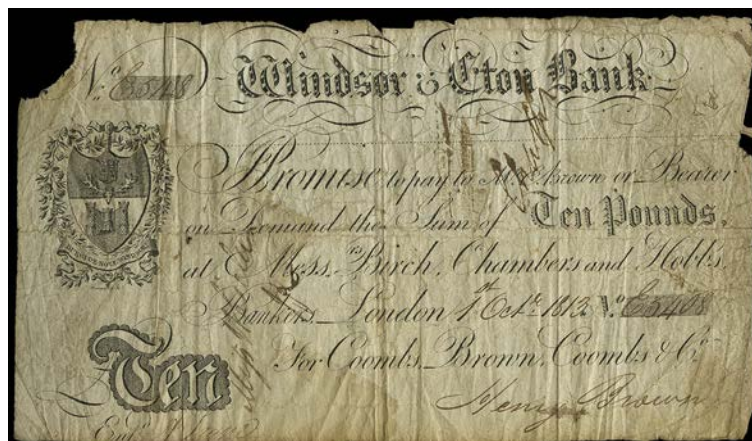 No. E5408
Windsor & Eton Bank
Promise to pay to Mr. Brown or Bearer
on Demand the Sum of Ten Pounds,
at Messrs. Birch, Chambers and Hobbs,
Bankers London 1st Octr. 1813 No. E5408
For Coombs, Brown, Coombs & Co.
Ten
Henry Brown
Entd.